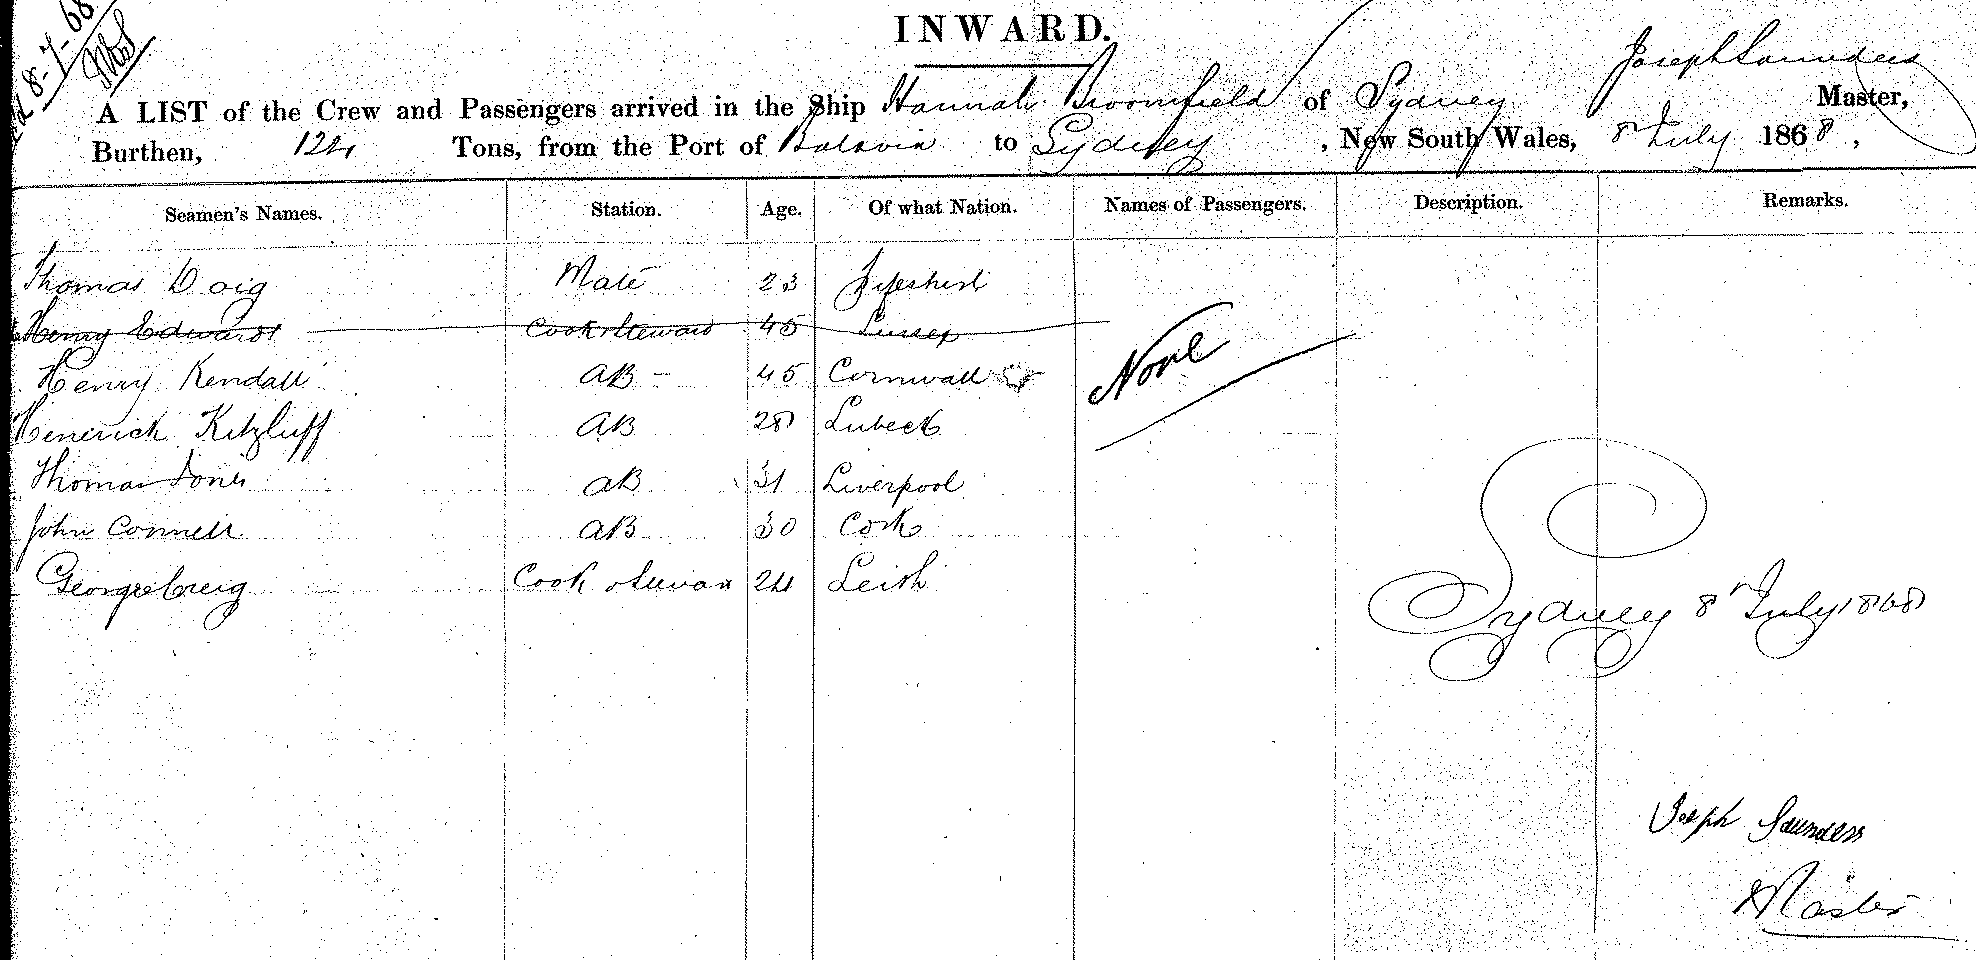 8-7-68
INWARD.
Joseph Saunders
A LIST of the Crew and Passengers arrived in the Ship Hannah Broomfield of Sydney Master,
Burthen, 124 Tons, from the Port of Batavia to Sydney, New South Wales, 8 July 1868,
Seamen's Names. Station. Age. Of what Nation. Names of Passengers. Description. Remarks.
Thomas Mate 23 Fifeshire
Henry Edwards Cook & Steward 45 Sussex
Henry Kendall AB 45 Cornwall
None
Henerich Kitzluff AB 28 Lubeck
Thomas Jones AB 31 Liverpool
John Connell AB 30 Cork
George Creig Cook & Stewar 24 Leith
Sydney 8 July 1868
Joseph Saunders
Master